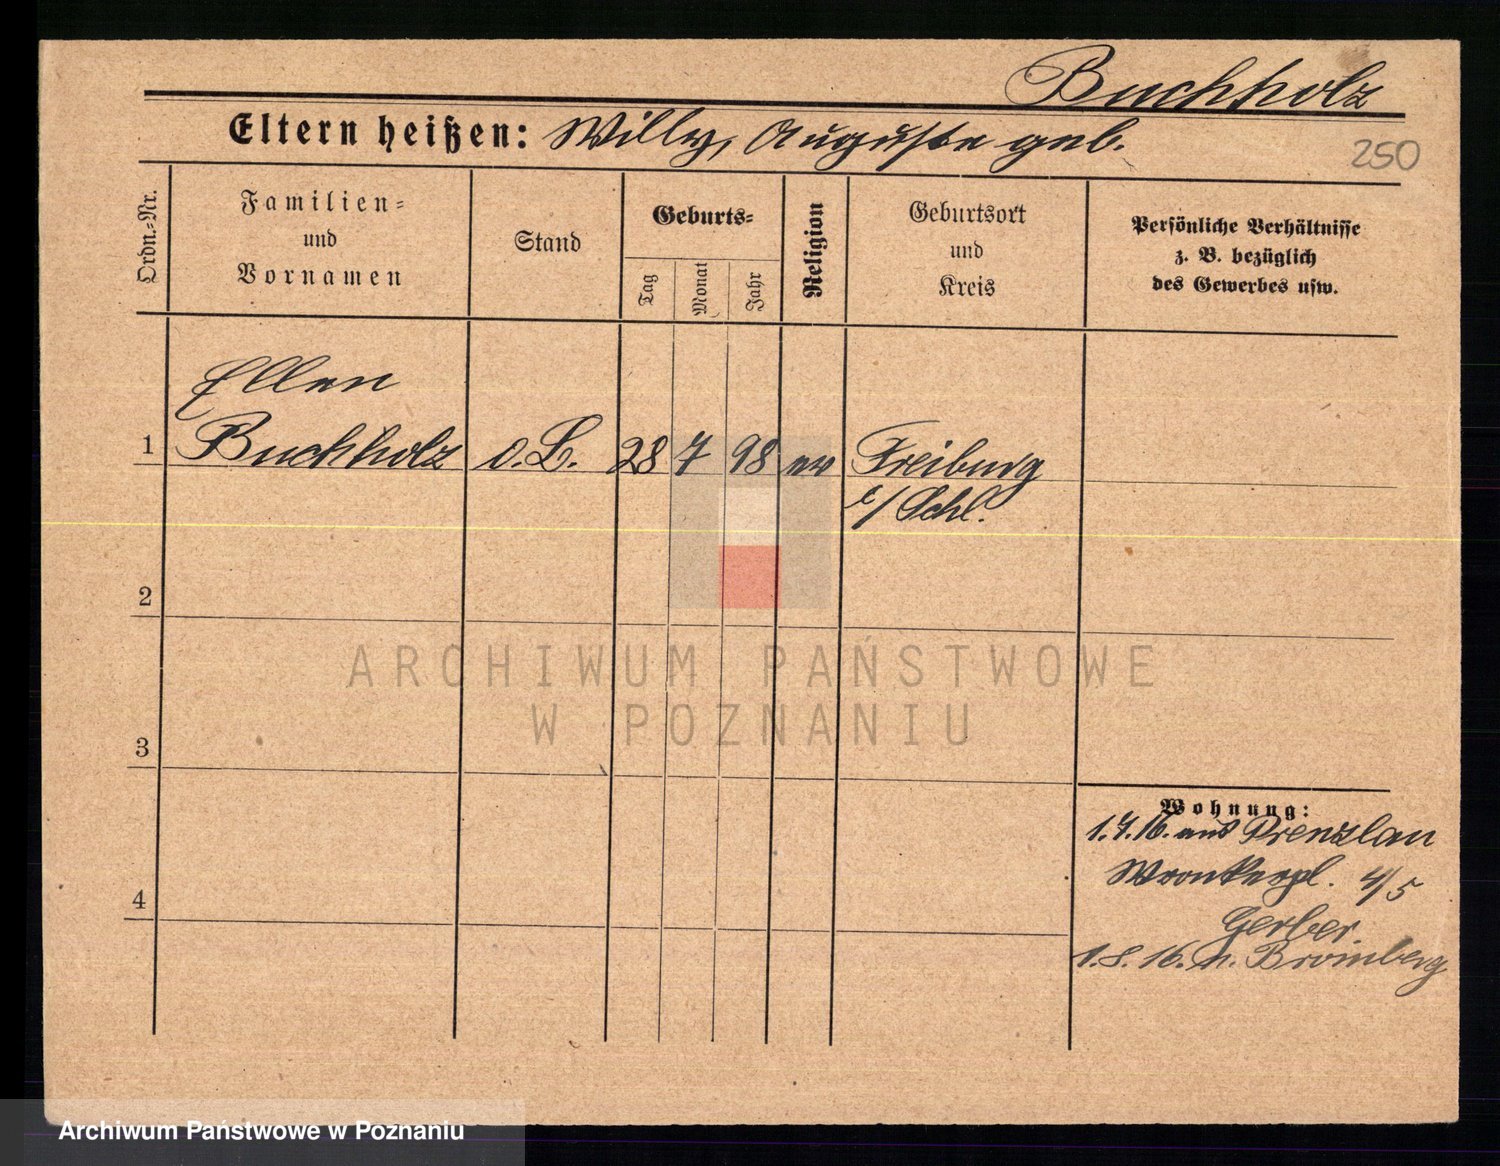 Buchholz
Eltern heißen: Willy, Auguste geb.
250
Ordn.-Nr.
Familien-
und
Vornamen
Stand
Geburts-
Tag
Monat
Jahr
Religion
Geburtsort
und
Kreis
Persönliche Verhältnisse
z. B. bezüglich
des Gewerbes usw.
Ellen
1 Buchholz o.B. 28 7 98 ev Freiburg
i/Schl.
2
ARCHIWUM PAŃSTWOWE
W POZNANIU
3
Wohnung:
1.7.16. aus Prenzlau
Wronkerpl. 4/5
4
Gerber
1.8.16. n. Bromberg
Archiwum Państwowe w Poznaniu